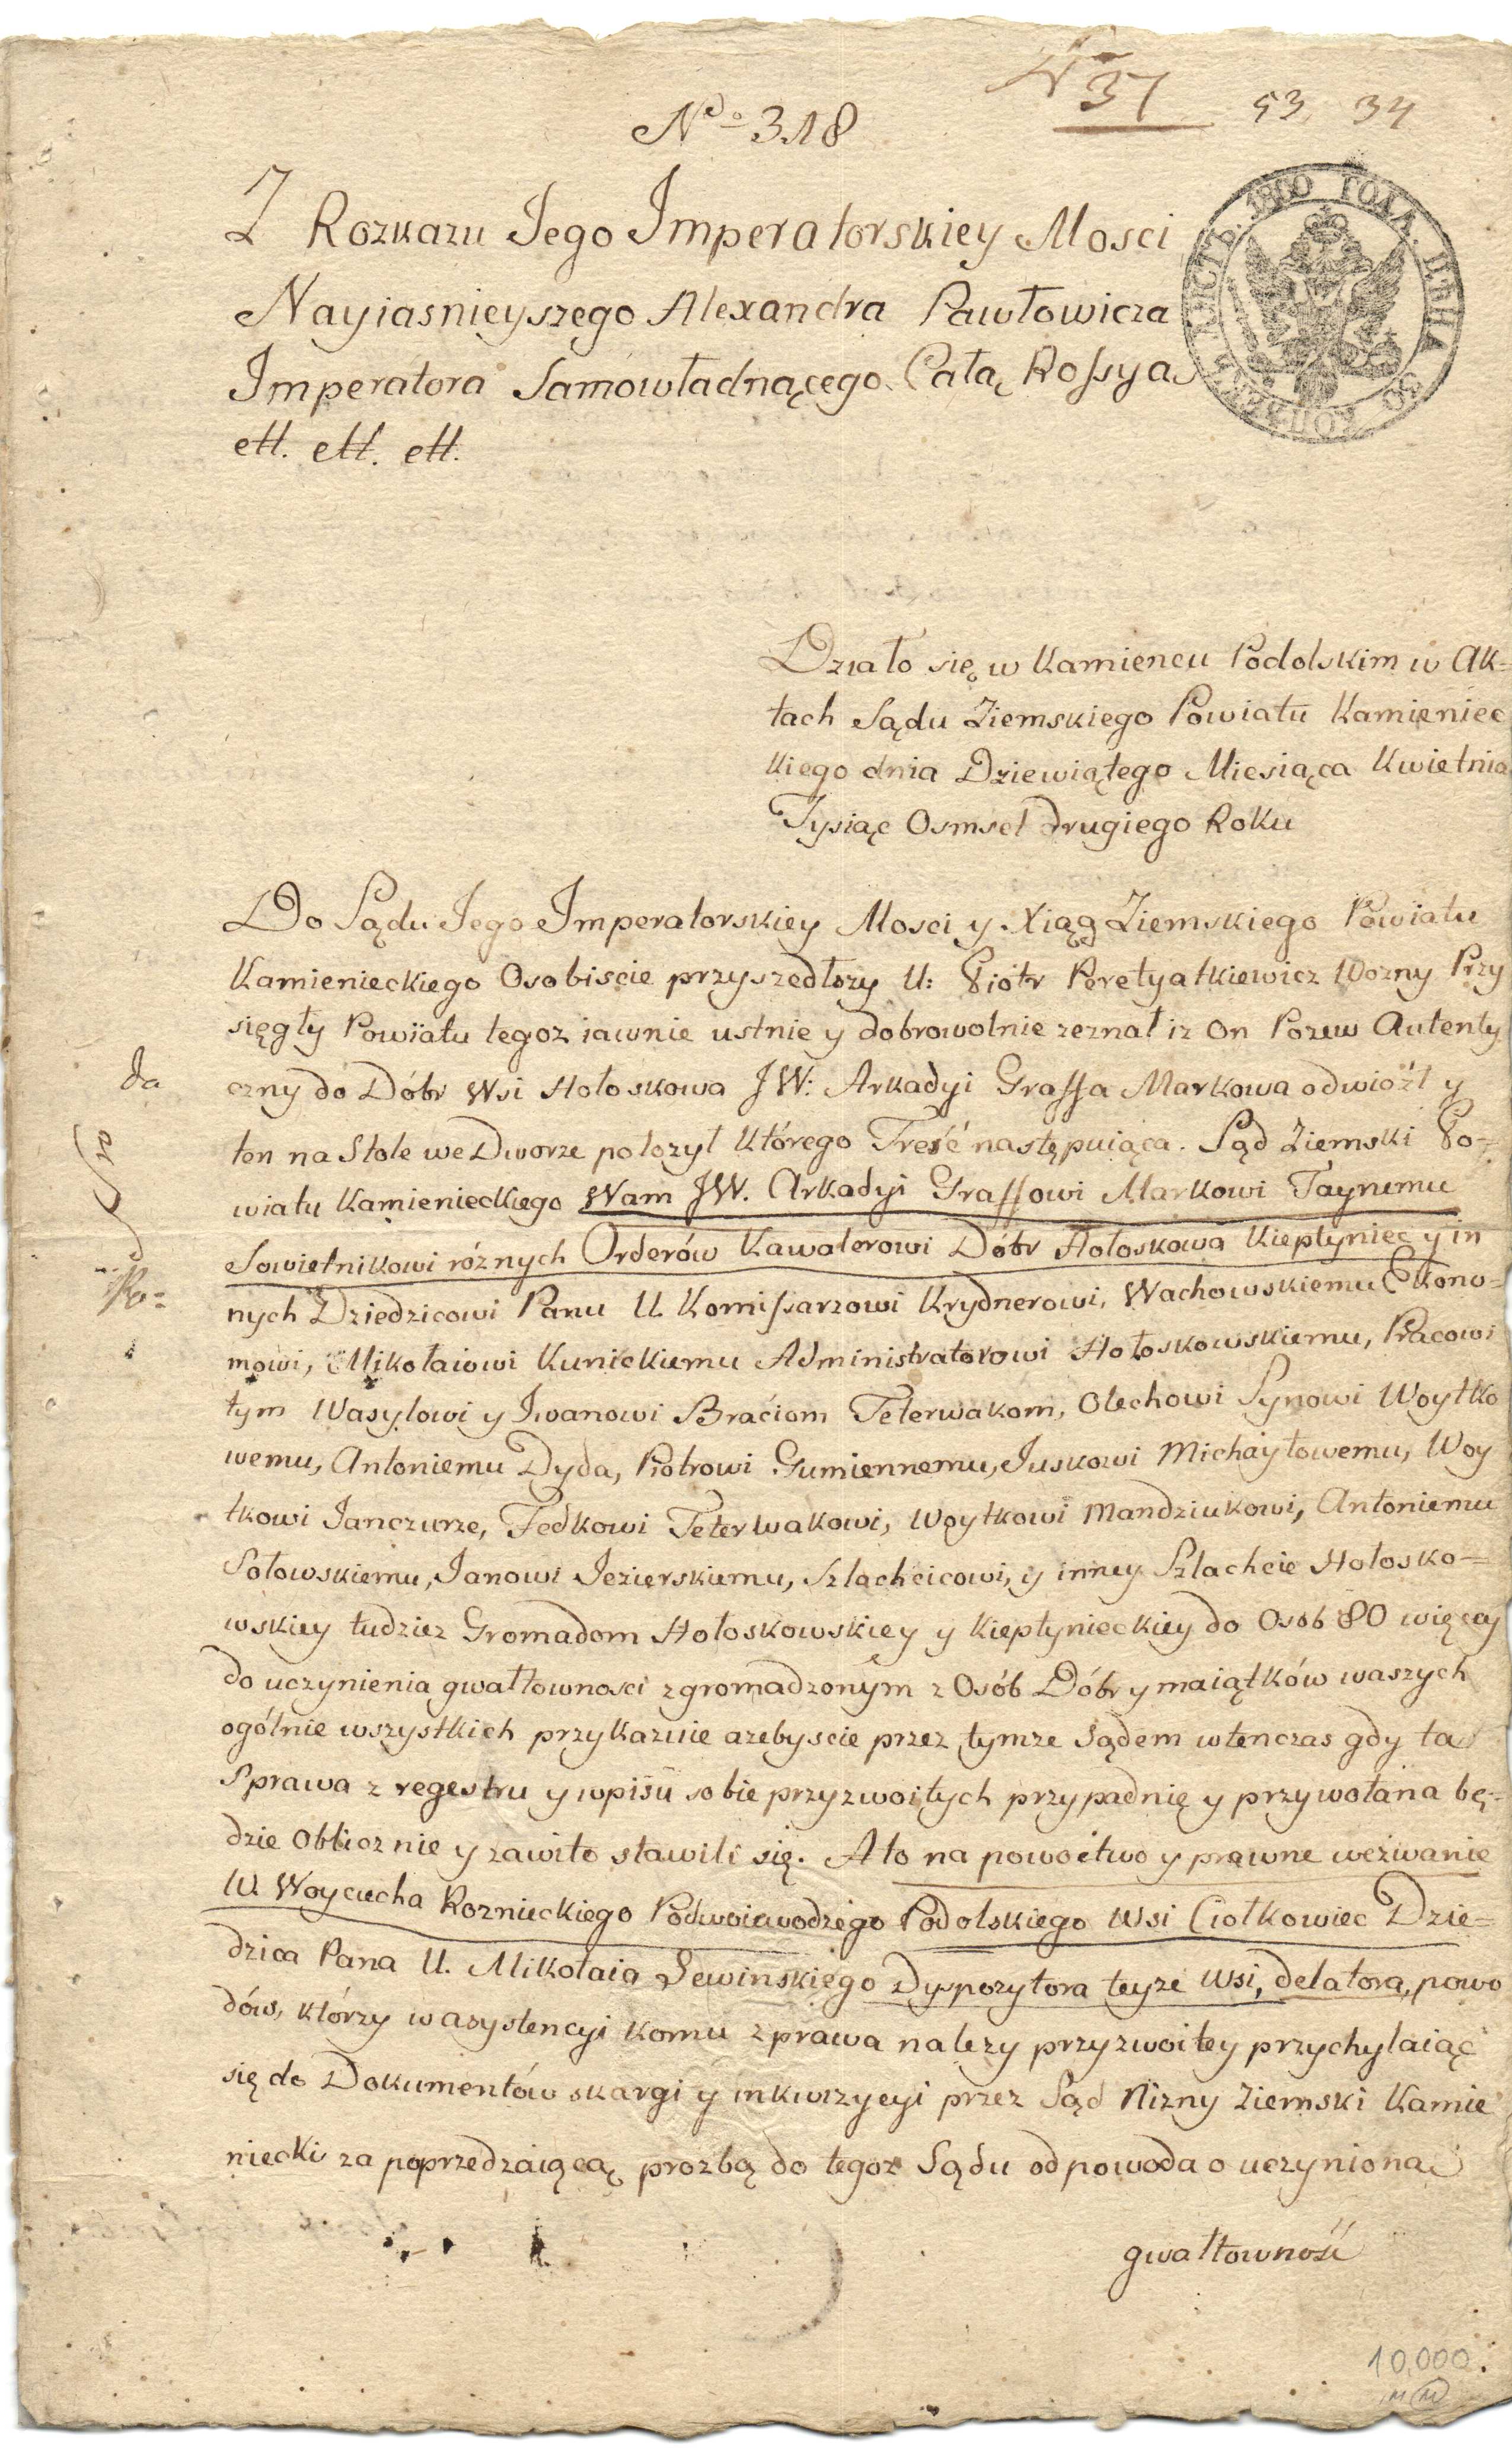 N 37
53. 34
Ndo 318
Z Rozkazu Jego Imperatorskiey Mosci
Nayiasnieyszego Alexandra Pawłowicza
Imperatora Samowładnącego Całą Rossyą
ett. ett. ett.
1800 ГОДА. ЦѢНА 30 КОПѢЕКЪ
Działo się w Kamiencu Podolskim w Ak=
tach Sądu Ziemskiego Powiatu Kamieniec
kiego dnia Dziewiątego Miesiąca Kwietnia
Tysiąc Osmset drugiego Roku
Do Sądu Jego Imperatorskiey Mosci y Xiąg Ziemskiego Powiatu
Kamienieckiego Osobiscie przyszedłszy U: Piotr Peretyatkiewicz Wozny Przy
sięgły Powiatu tegoz iawnie ustnie y dobrowolnie zeznał iz on Pozew Autenty
czny do Dóbr Wsi Hołoskowa JW: Arkadyi Graffa Markowa odwiózł y
ten na Stole we Dworze polozył którego Treść następuiąca. Sąd Ziemski Po=
wiatu Kamienieckiego Wam JW. Arkadyi Graffowi Markowi Taynemu
Sowietnikowi róznych Orderów Kawalerowi Dóbr Hołoskowa Kieptyniec y in
nych Dziedzicowi Panu U. Komissarzowi Krydnerowi, Wachowskiemu Ekono=
mowi, Mikołaiowi Kunickiemu Administratorowi Hołoskowskiemu, Pracowi
tym Wasylowi y Iwanowi Braciom Teterwakom, Olechowi Synowi Woytko
wemu, Antoniemu Dyda, Piotrowi Gumiennemu, Juskowi Michayłowemu, Woy
tkowi Janczurze, Fedkowi Teterwakowi, Woytkowi Mandziukowi, Antoniemu
Sołowskiemu, Janowi Jezierskiemu, Szlachcicowi, y inney Szlachcie Hołosko=
wskiey tudziez Gromadom Hołoskowskiey y Kieptynieckiey do Osob 80 więcey
do uczynienia gwałtownosci zgromadzonym z Osób Dóbr y maiątków waszych
ogólnie wszystkich przykazuie azebyscie przez tymze Sądem wtenczas gdy ta
Sprawa z regestru y wpisu sobie przyzwoitych przypadnie y przywołana bę=
dzie Oblicznie y zawito stawili się. A to na powoctwo y prawne wezwanie
W. Woyciecha Roznieckiego Podwoiewodzego Podolskiego Wsi Ciołkowiec Dzie=
dzica Pana U. Mikołaia Lewinskiego Dyspozytora teyze Wsi, delatora, powo
dów, którzy w asystencyi komu z prawa nalezy przyzwoitey przychylaiąc
się do Dokumentów skargi y inkwizycyi przez Sąd Nizny Ziemski Kamie
niecki za poprzedzaiącą prozbą do tegoz Sądu od powoda o uczynioną
gwałtowność
10,000.